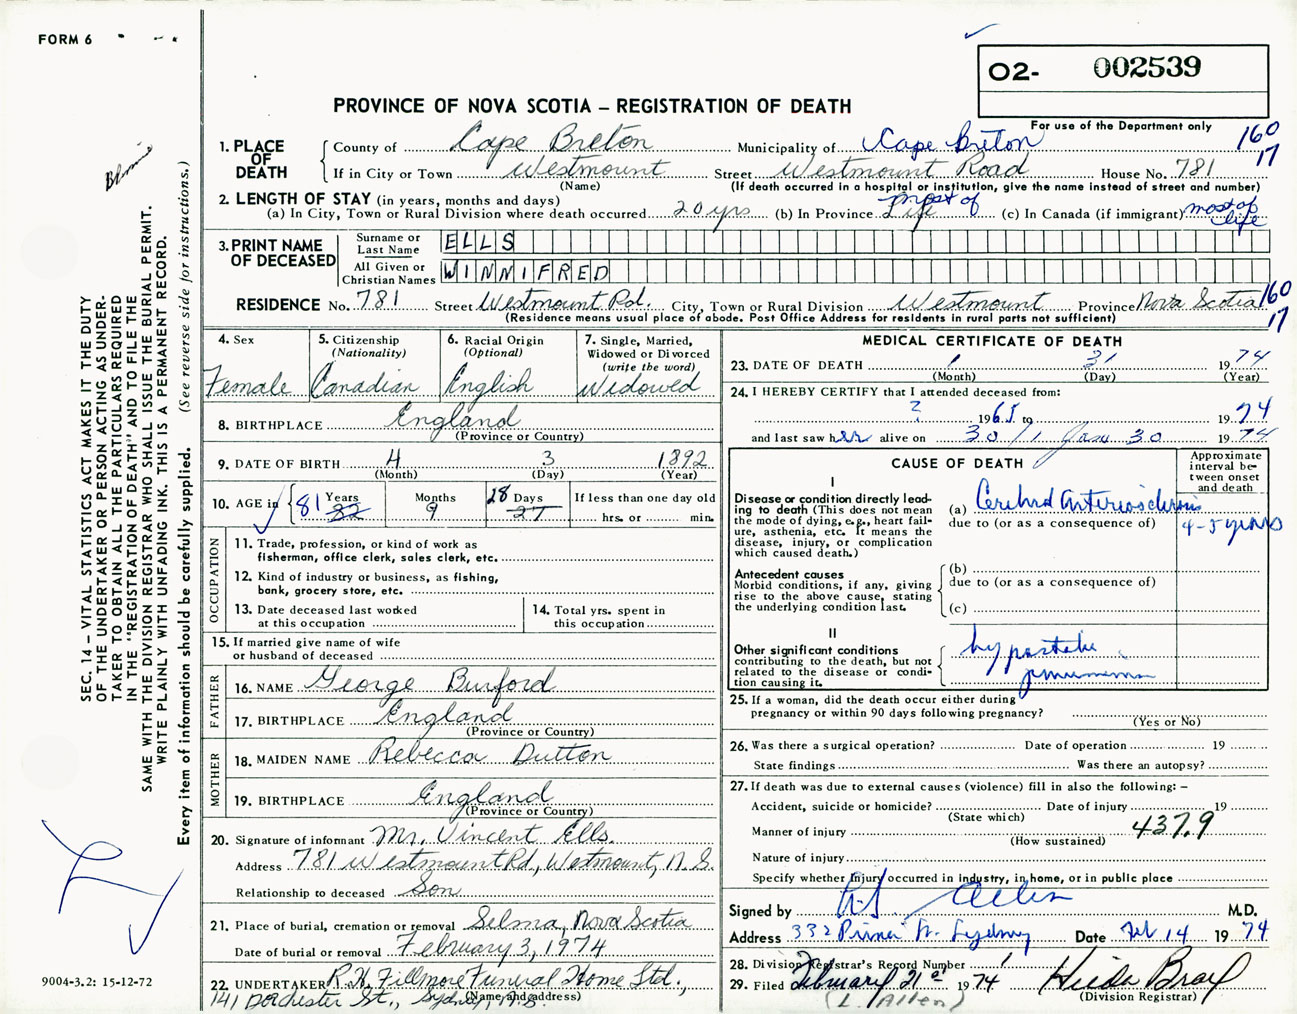 FORM 6
O2- 002539
PROVINCE OF NOVA SCOTIA – REGISTRATION OF DEATH
For use of the Department only
160
17
1. PLACE OF DEATH
County of Cape Breton Municipality of Cape Breton
If in City or Town Westmount Street Westmount Road House No. 781
(Name) (If death occurred in a hospital or institution, give the name instead of street and number)
2. LENGTH OF STAY (in years, months and days)
(a) In City, Town or Rural Division where death occurred 20 yrs (b) In Province most of Life (c) In Canada (if immigrant) most of life
3. PRINT NAME OF DECEASED
Surname or Last Name ELLS
All Given or Christian Names WINNIFRED
RESIDENCE No. 781 Street Westmount Rd. City, Town or Rural Division Westmount Province Nova Scotia 160
17
(Residence means usual place of abode. Post Office Address for residents in rural parts not sufficient)
4. Sex
Female
5. Citizenship
(Nationality)
Canadian
6. Racial Origin
(Optional)
English
7. Single, Married,
Widowed or Divorced
(write the word)
Widowed
8. BIRTHPLACE England
(Province or Country)
9. DATE OF BIRTH 4 3 1892
(Month) (Day) (Year)
10. AGE in 81 82 Years 9 Months 28 27 Days
If less than one day old
hrs. or min.
OCCUPATION
11. Trade, profession, or kind of work as
fisherman, office clerk, sales clerk, etc.
12. Kind of industry or business, as fishing,
bank, grocery store, etc.
13. Date deceased last worked
at this occupation
14. Total yrs. spent in
this occupation
15. If married give name of wife
or husband of deceased
FATHER
16. NAME George Burford
17. BIRTHPLACE England
(Province or Country)
MOTHER
18. MAIDEN NAME Rebecca Dutton
19. BIRTHPLACE England
(Province or Country)
20. Signature of informant Mr. Vincent Ells.
Address 781 Westmount Rd., Westmount, N.S.
Relationship to deceased Son
21. Place of burial, cremation or removal Selma, Nova Scotia
Date of burial or removal February 3, 1974
22. UNDERTAKER R.H. Fillmore Funeral Home Ltd.,
141 Dorchester St., Sydney, N.S.
(Name and address)
MEDICAL CERTIFICATE OF DEATH
23. DATE OF DEATH 1 31 1974
(Month) (Day) (Year)
24. I HEREBY CERTIFY that I attended deceased from:
? 1965 to 1974
and last saw her alive on 30/1 Jan 30 1974
CAUSE OF DEATH
Approximate
interval be-
tween onset
and death
I
Disease or condition directly lead-
ing to death (This does not mean
the mode of dying, e.g., heart fail-
ure, asthenia, etc. It means the
disease, injury, or complication
which caused death.)
(a) Cerebral Arteriosclerosis
due to (or as a consequence of)
4-5 years
Antecedent causes
Morbid conditions, if any, giving
rise to the above cause, stating
the underlying condition last.
(b)
due to (or as a consequence of)
(c)
II
Other significant conditions
contributing to the death, but not
related to the disease or condi-
tion causing it.
hypostatic
pneumonia
25. If a woman, did the death occur either during
pregnancy or within 90 days following pregnancy?
(Yes or No)
26. Was there a surgical operation? Date of operation 19
State findings Was there an autopsy?
27. If death was due to external causes (violence) fill in also the following: –
Accident, suicide or homicide? Date of injury 19
(State which)
Manner of injury 437.9
(How sustained)
Nature of injury
Specify whether injury occurred in industry, in home, or in public place
Signed by Allen M.D.
Address 332 Prince St. Sydney Date Feb 14 1974
28. Division Registrar's Record Number 1
29. Filed February 21st 1974 Hilda
(L. Allen) (Division Registrar)
SEC. 14 – VITAL STATISTICS ACT MAKES IT THE DUTY
OF THE UNDERTAKER OR PERSON ACTING AS UNDER-
TAKER TO OBTAIN ALL THE PARTICULARS REQUIRED
IN THE "REGISTRATION OF DEATH" AND TO FILE THE
SAME WITH THE DIVISION REGISTRAR WHO SHALL ISSUE THE BURIAL PERMIT.
WRITE PLAINLY WITH UNFADING INK. THIS IS A PERMANENT RECORD.
Every item of information should be carefully supplied. (See reverse side for instructions.)
9004-3.2: 15-12-72